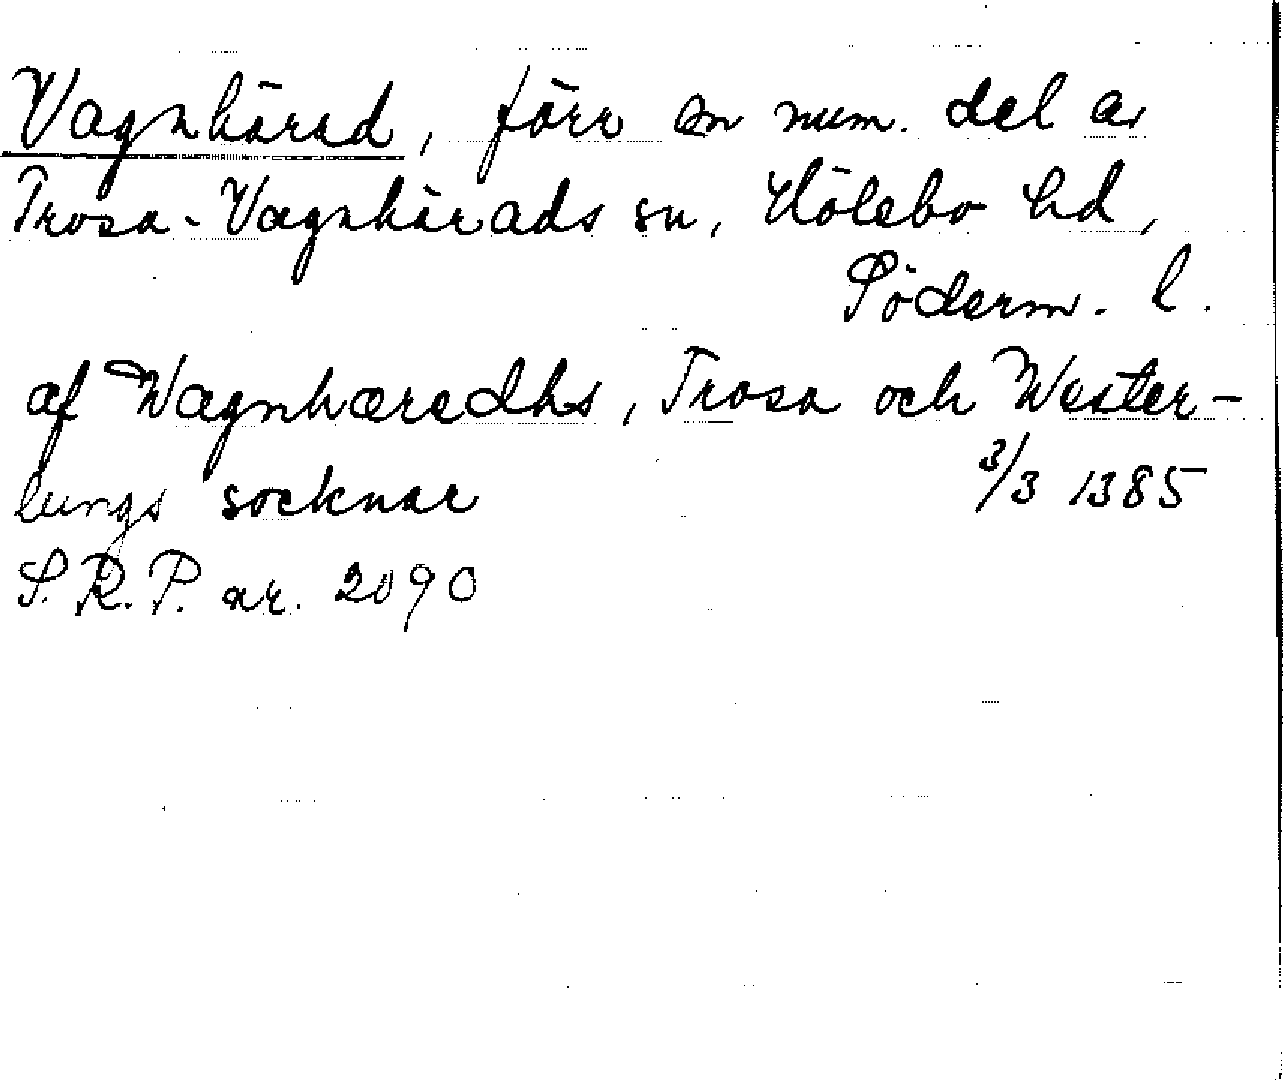 Vagnhärad, förr sn num. del av
Trosa-Vagnhärads sn, Hölebo hd,
Söderm. l.
af Wagnhæredhs, Trosa och Wester-
lungs socknar 3/3 1385
S.R.P. nr. 2090